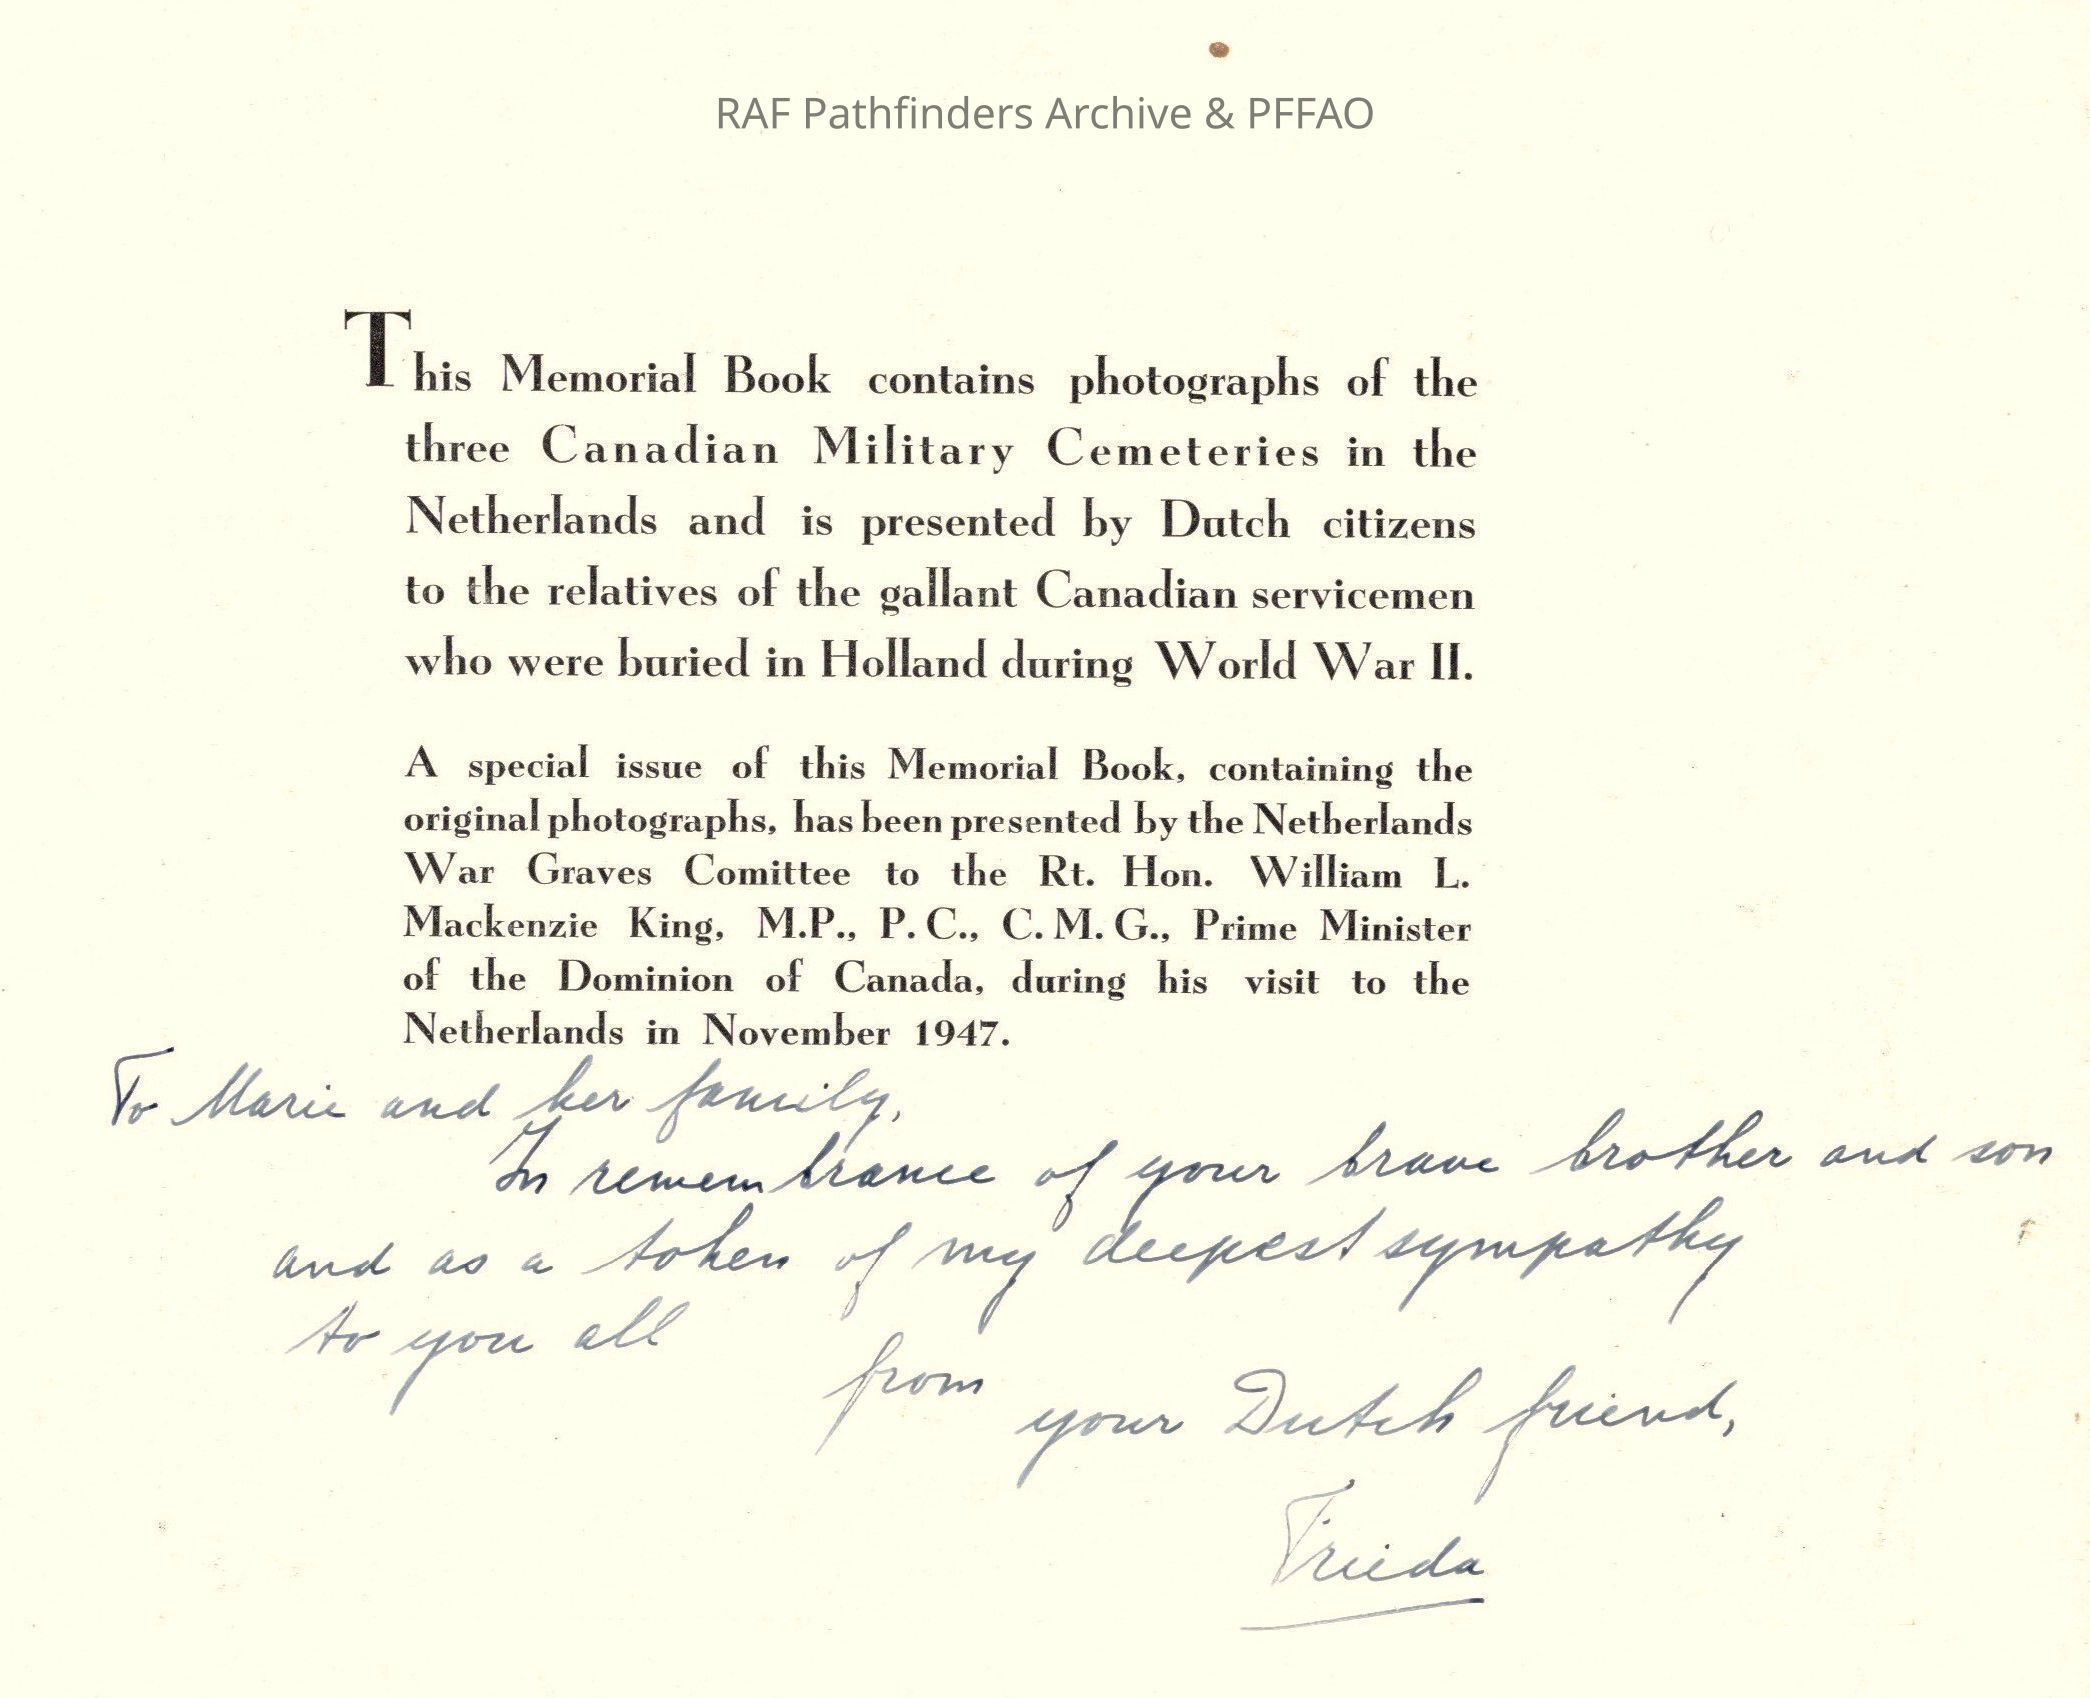 RAF Pathfinders Archive & PFFAO
This Memorial Book contains photographs of the
three Canadian Military Cemeteries in the
Netherlands and is presented by Dutch citizens
to the relatives of the gallant Canadian servicemen
who were buried in Holland during World War II.
A special issue of this Memorial Book, containing the
original photographs, has been presented by the Netherlands
War Graves Comittee to the Rt. Hon. William L.
Mackenzie King, M.P., P.C., C.M.G., Prime Minister
of the Dominion of Canada, during his visit to the
Netherlands in November 1947.
To Marie and her family,
In remembrance of your brave brother and son
and as a token of my deepest sympathy
to you all
from
your Dutch friend,
Frieda